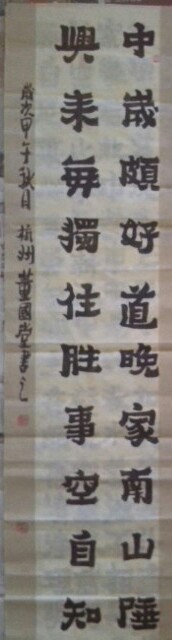 中歲頗好道晚家南山陲
興来每獨往胜事空自知
歲次甲午秋月杭州董國堂書之